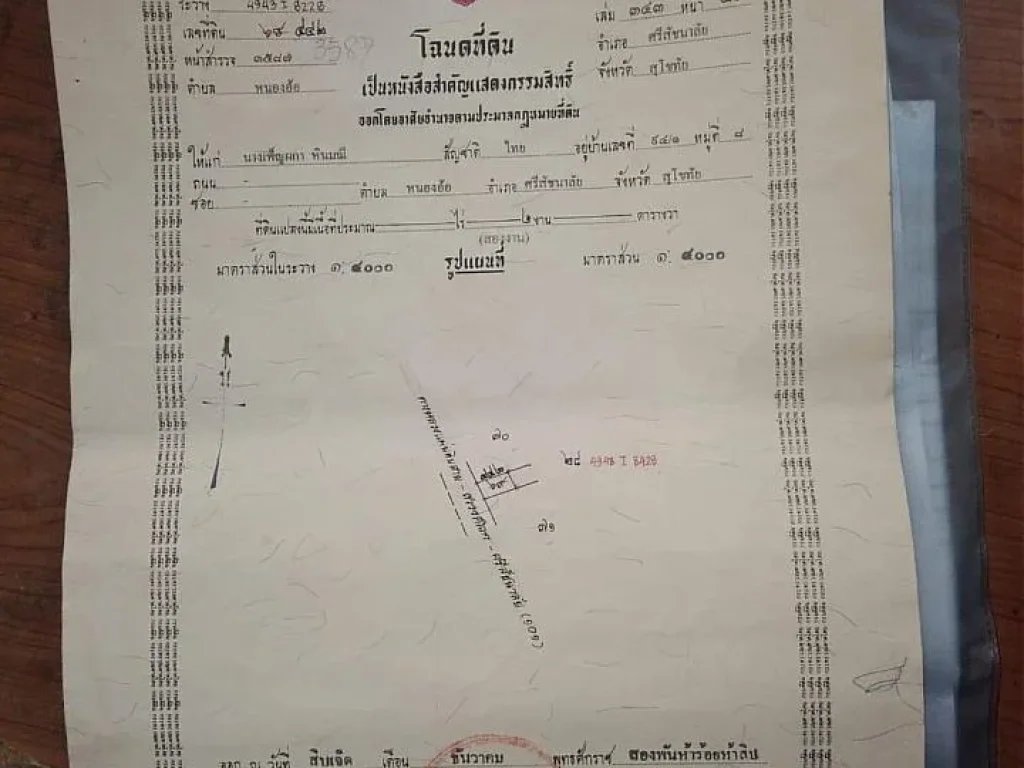 ระวาง 4943 I 8228
เล่ม ๓๔๓ หน้า
เลขที่ดิน ๔๔๒
อำเภอ ศรีสัชนาลัย
หน้าสำรวจ ๓๕๘๗ 3587
โฉนดที่ดิน
จังหวัด สุโขทัย
ตำบล หนองอ้อ
เป็นหนังสือสำคัญแสดงกรรมสิทธิ์
ออกโดยอาศัยอำนาจตามประมวลกฎหมายที่ดิน
ให้แก่ นางเพ็ญผกา หินมณี สัญชาติ ไทย อยู่บ้านเลขที่ ๙๔/๑ หมู่ที่ ๘
ถนน -
ซอย - ตำบล หนองอ้อ อำเภอ ศรีสัชนาลัย จังหวัด สุโขทัย
ที่ดินแปลงนี้มีเนื้อที่ประมาณ ไร่ ๒ งาน ตารางวา
(สองงาน)
มาตราส่วนในระวาง ๑: ๔๐๐๐ รูปแผนที่ มาตราส่วน ๑: ๔๐๐๐
๗๐
๒๘ 4943 I 8428
๔๔๒
๗๑
ศรีสัชนาลัย (๑๐๑)
ออก ณ วันที่ สิบเจ็ด เดือน ธันวาคม พุทธศักราช สองพันห้าร้อยห้าสิบ